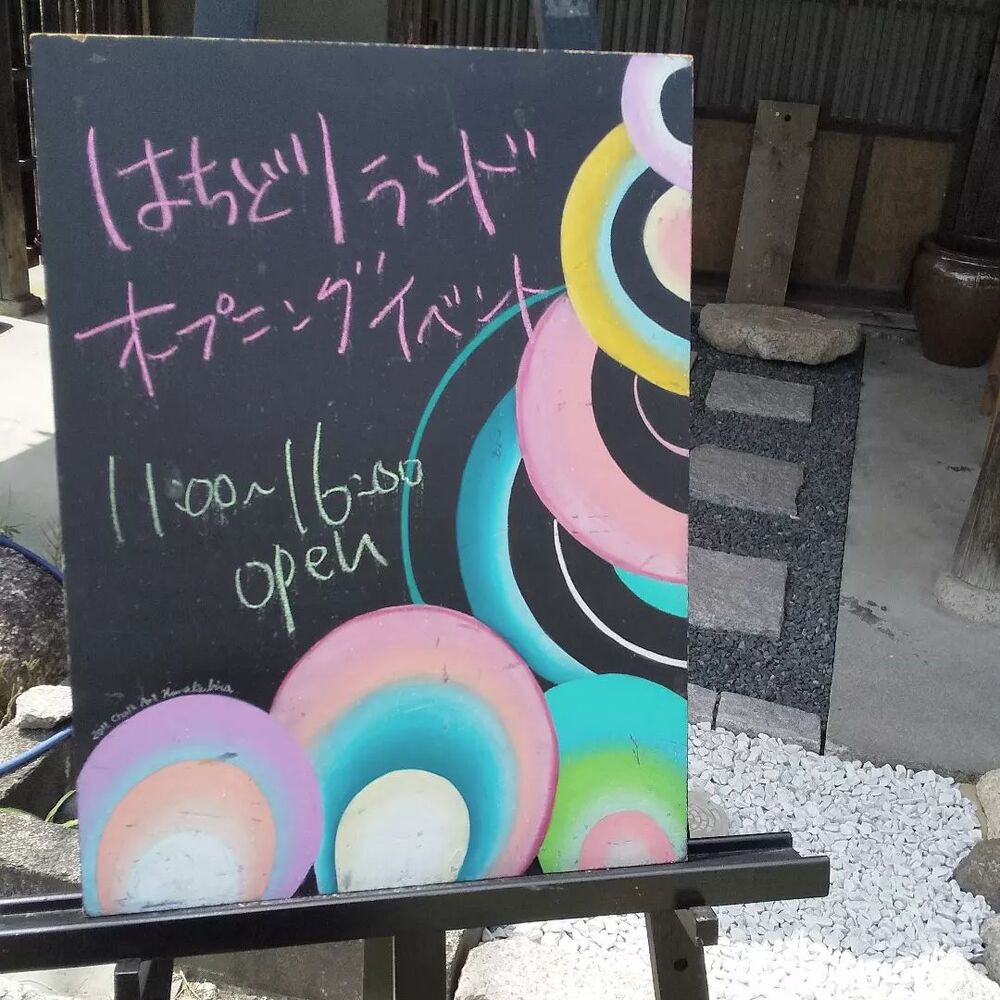 はちどりランド
オープニングイベント
11:00~16:00
open
Chalk Art